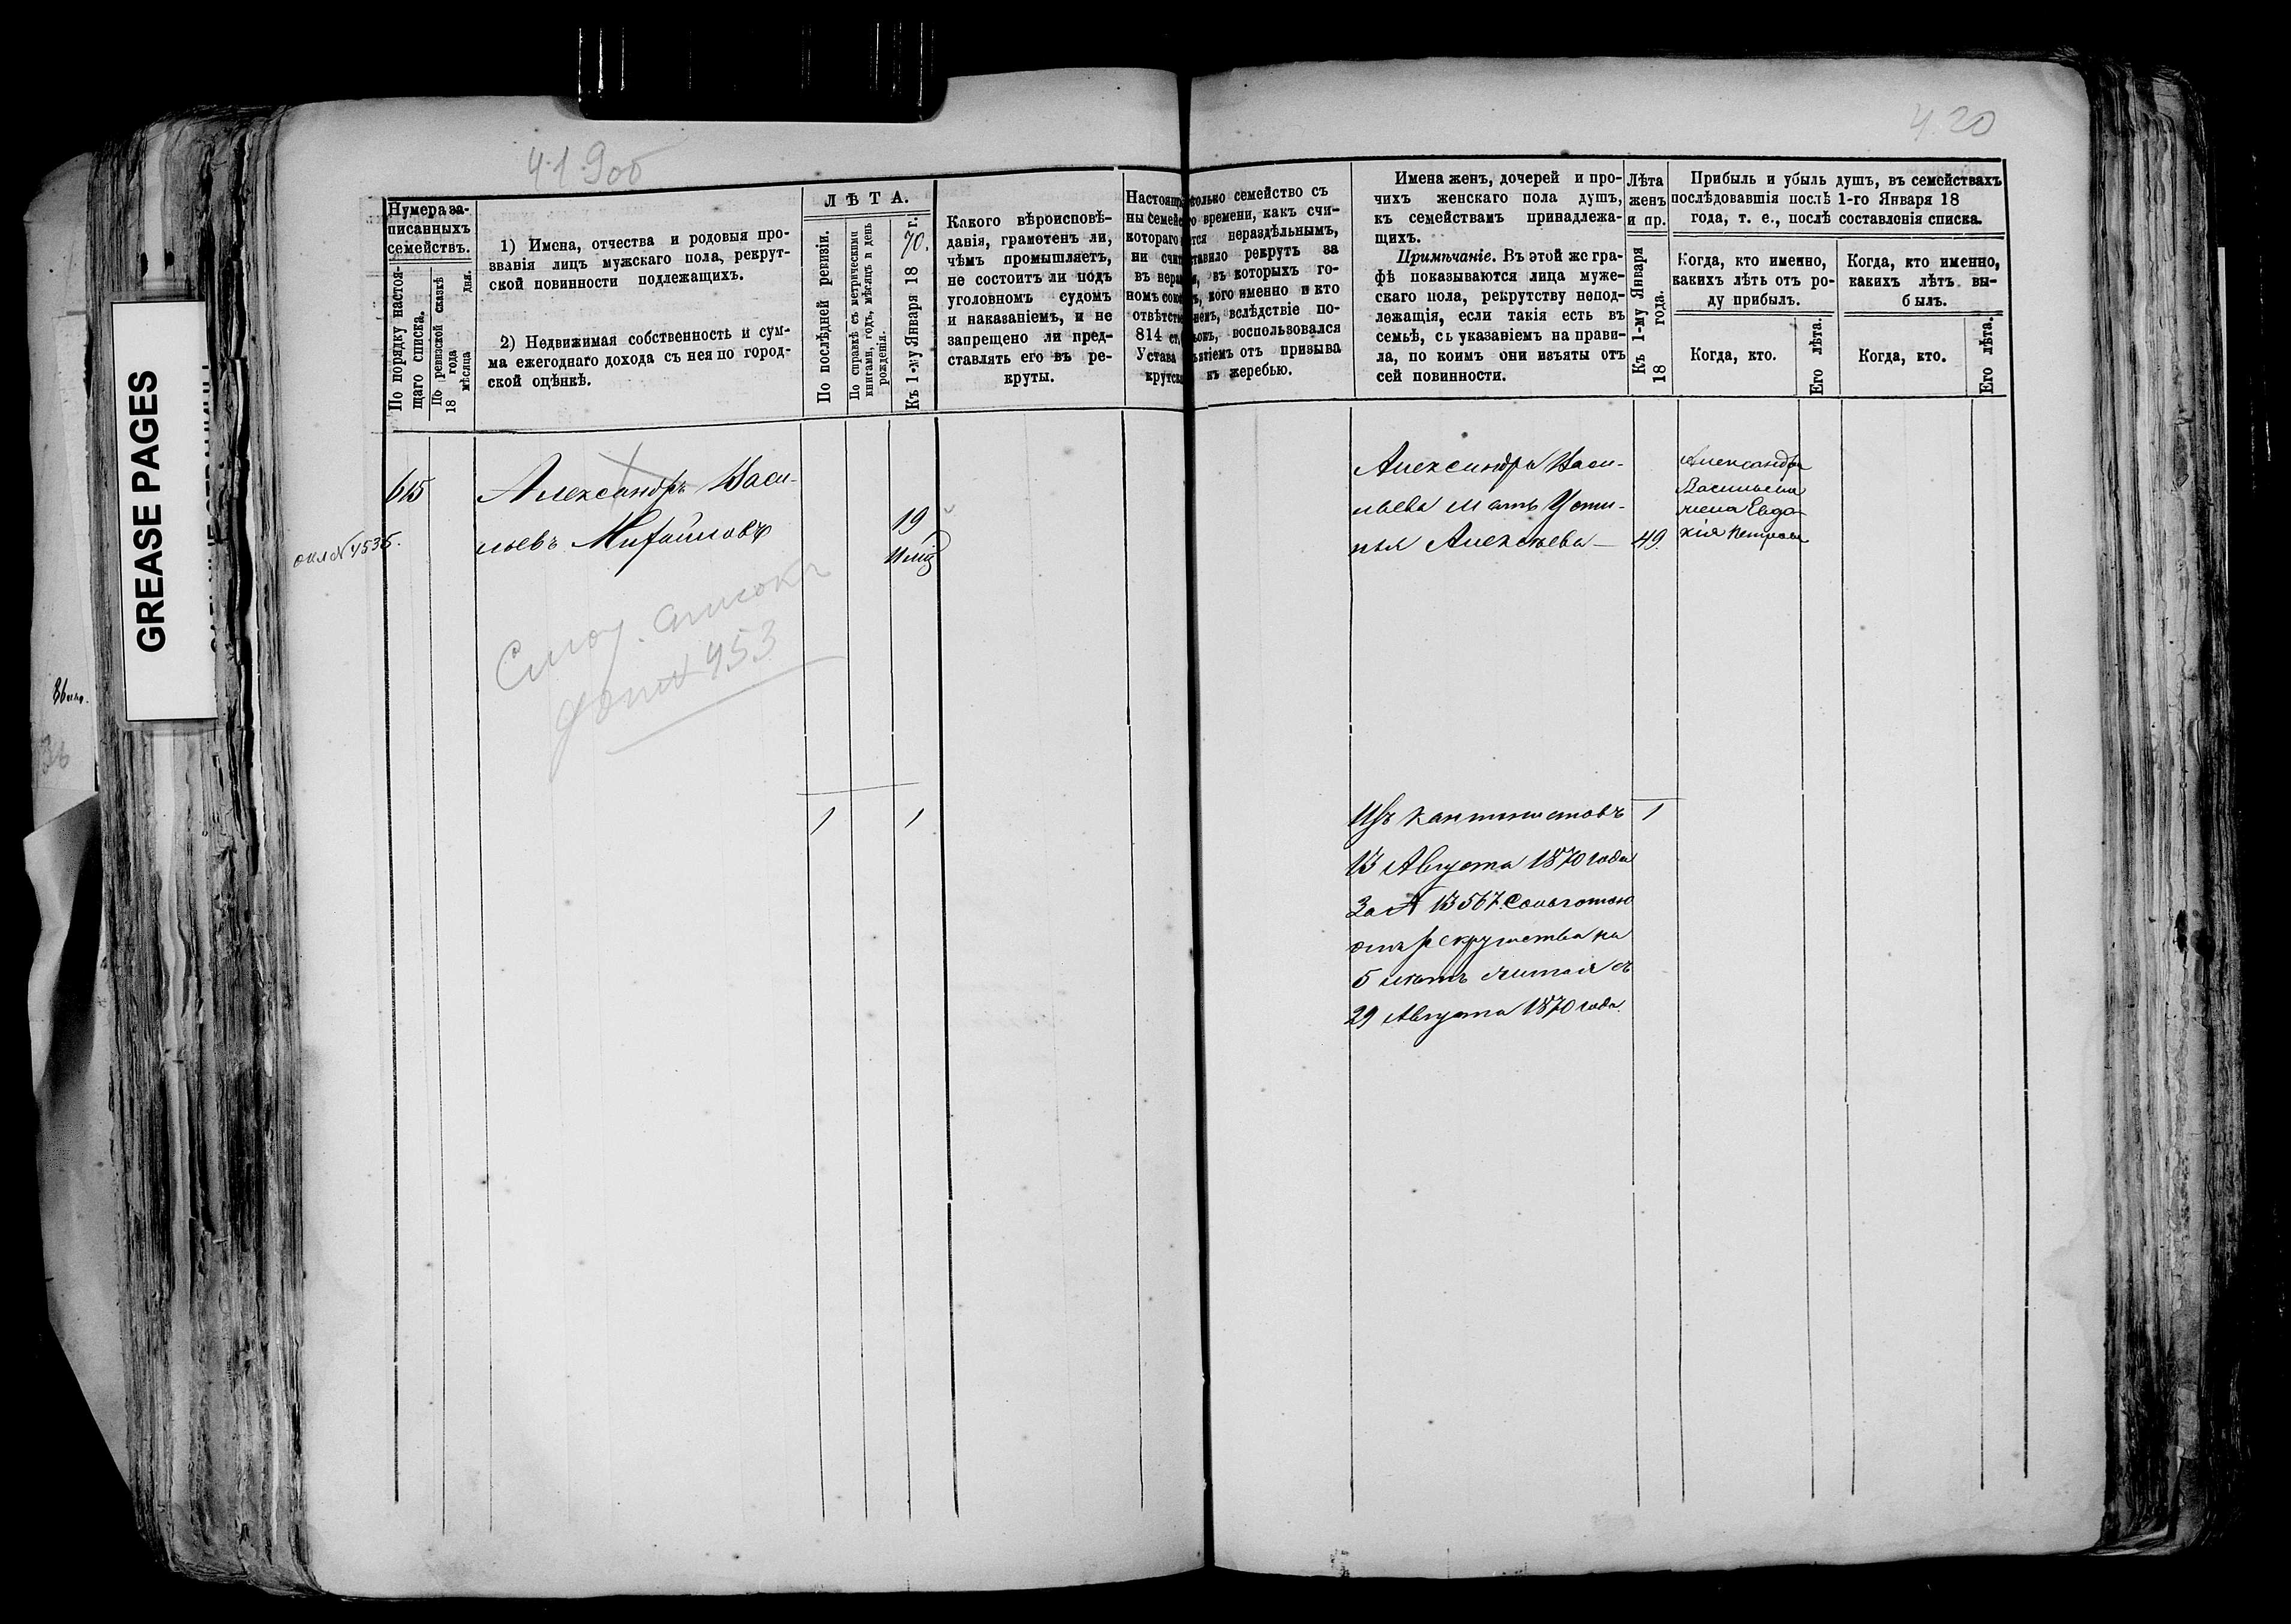 419об
420
GREASE PAGES
Нумера за-
писанныхъ
семействъ.
По порядку настоя-
щаго списка.
По ревизской сказкѣ
18 года
мѣсяца дня.
1) Имена, отчества и родовыя про-
званія лицъ мужскаго пола, рекрут-
ской повинности подлежащихъ.
2) Недвижимая собственность и сум-
ма ежегоднаго дохода съ нея по город-
ской оцѣнкѣ.
ЛѢТА.
По послѣдней ревизіи.
По справкѣ съ метрическими
книгами, годъ, мѣсяцъ и день
рожденія.
Къ 1-му Января 1870. г.
Какого вѣроисповѣ-
данія, грамотенъ ли,
чѣмъ промышляетъ,
не состоитъ ли подъ
уголовномъ судомъ
и наказаніемъ, и не
запрещено ли пред-
ставлять его въ ре-
круты.
Настоящ
ны семей
котораго
ни счи
въ нера
номъ сок
отвѣтст
814 ст.
Устава
крутск
только семейство съ
го времени, какъ счи-
тся нераздѣльнымъ,
тавило рекрутъ за
въ которыхъ го-
кого именно и кто
вслѣдствіе по-
воспользовался
ятіемъ отъ призыва
къ жеребью.
Имена женъ, дочерей и про-
чихъ женскаго пола душъ,
къ семействамъ принадлежа-
щихъ.
Примѣчаніе. Въ этой же гра-
фѣ показываются лица муже-
скаго пола, рекрутству непод-
лежащія, если такія есть въ
семьѣ, съ указаніемъ на прави-
ла, по коимъ они изъяты отъ
сей повинности.
Лѣта
женъ
и пр.
Къ 1-му Января
18 года.
Прибыль и убыль душъ, въ семействахъ
послѣдовавшія послѣ 1-го Января 18
года, т. е., послѣ составленія списка.
Когда, кто именно,
какихъ лѣтъ отъ ро-
ду прибылъ.
Когда, кто.
Его лѣта.
Когда, кто именно,
какихъ лѣтъ вы-
былъ.
Когда, кто.
Его лѣта.
615
Александръ Васи-
льевъ Михайловъ
19
11 мц
окл № 4535.
списокъ
453
1 1
Александра Васи-
льева мать Усти-
нья Алексѣева — 49.
Александра
Васильева
жена Евдо-
кія Петрова
Изъ кантонистовъ 1
13 Августа 1870 года
За № 13567. Сольготою
отъ рекрутства на
5 лѣтъ считая съ
29 Августа 1870 года.